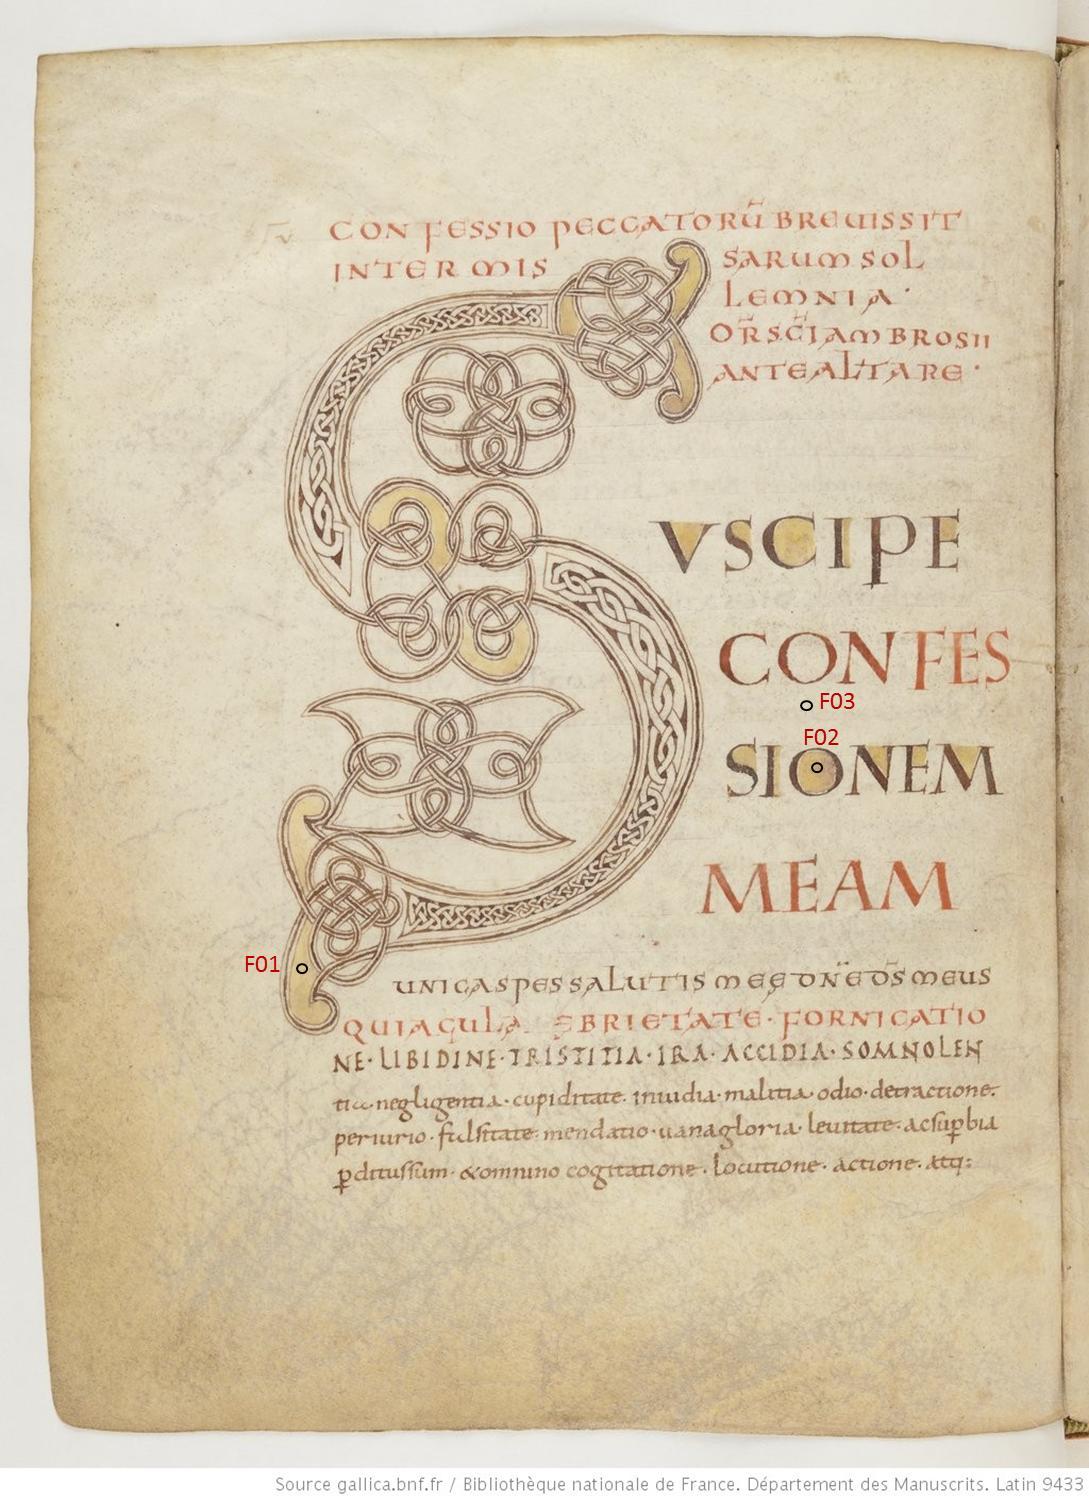 CONFESSIO PECCATORŪ BREUISSIT
INTERMIS SARUM SOL
LEMNIA·
OR̄ SC̄I AMBROSII
ANTE ALTARE·
SVSCIPE
CONFES
F03
F02
SIONEM
MEAM
F01
UNICA SPES SALUTIS MEĘ DN̄E DS̄ MEUS
QUIA GULA EBRIETATE· FORNICATIO
NE· LIBIDINE· TRISTITIA· IRA· ACCIDIA· SOMNOLEN
tia· negligentia· cupiditate· inuidia· malitia· odio· detractione·
periurio· falsitate· mendatio· uanagloria· leuitate· ac suꝑbia
ꝑditus sum· & omnino cogitatione· locutione· actione· atq:
Source gallica.bnf.fr / Bibliothèque nationale de France. Département des Manuscrits. Latin 9433